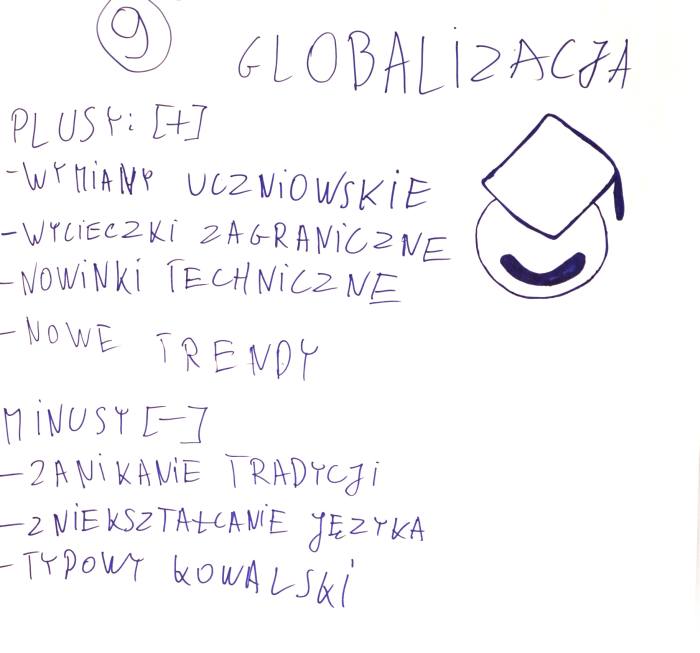 9
GLOBALIZACJA
PLUSY: [+]
- WYMIANY UCZNIOWSKIE
- WYCIECZKI ZAGRANICZNE
- NOWINKI TECHNICZNE
- NOWE TRENDY
MINUSY [-]
- ZANIKANIE TRADYCJI
- ZNIEKSZTAŁCANIE JĘZYKA
- TYPOWY KOWALSKI